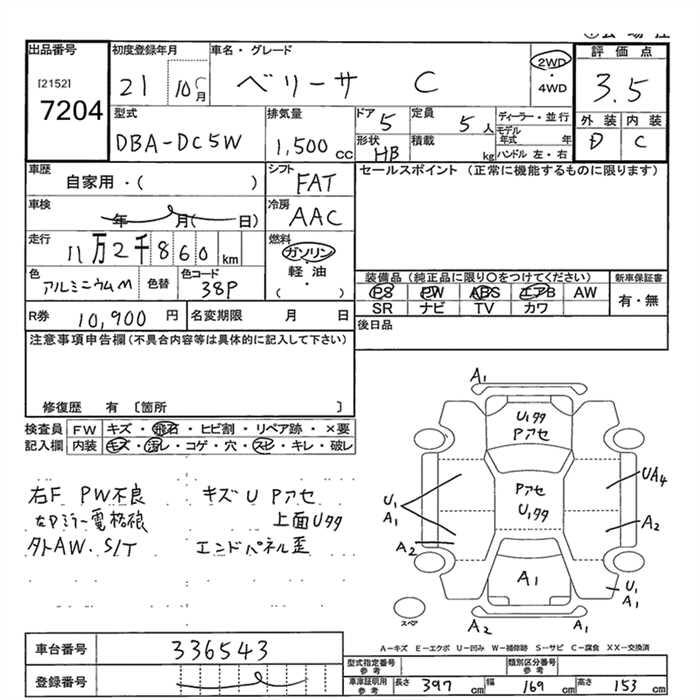 出品番号
[2152]
7204
初度登録年月
21 10月
車名・グレード
ベリーサ C
2WD
・
4WD
評価点
3.5
外装 内装
D C
型式
DBA-DC5W
排気量
1,500 cc
ドア 5
形状 HB
定員 5 人
積載 kg
ディーラー・並行
モデル年式 年
ハンドル 左・右
車歴
自家用・( )
シフト
FAT
セールスポイント (正常に機能するものに限ります)
車検
年 月( 日)
冷房
AAC
走行
11万2千860 km
燃料
ガソリン
軽油
( ・ )
色
アルミニウムM
色替
色コード
38P
装備品 (純正品に限り○をつけてください)
PS PW ABS エアB AW
SR ナビ TV カワ
新車保証書
有・無
R券 10,900 円
名変期限 月 日
後日品
注意事項申告欄 (不具合内容等は具体的に記入して下さい)
修復歴 有 〔箇所 〕
検査員記入欄
FW キズ・飛石・ヒビ割・リペア跡・×要
内装 キズ・汚レ・コゲ・穴・スレ・キレ・破レ
右F PW不良
左Dミラー電格破
外AW.S/T
キズ U Pアセ
上面Uタタ
エンドパネル歪
A1
U1タタ
Pアセ
Pアセ
U1タタ
U1
A1
A2
UA4
A2
A1
U1
A1
A2
A1
スペア
A-キズ E-エクボ U-凹み W-補修跡 S-サビ C-腐食 XX-交換済
車台番号 336543
登録番号
型式指定番号 参考
類別区分番号 参考
車庫証明用 参考
長さ 397 cm
幅 169 cm
高さ 153 cm